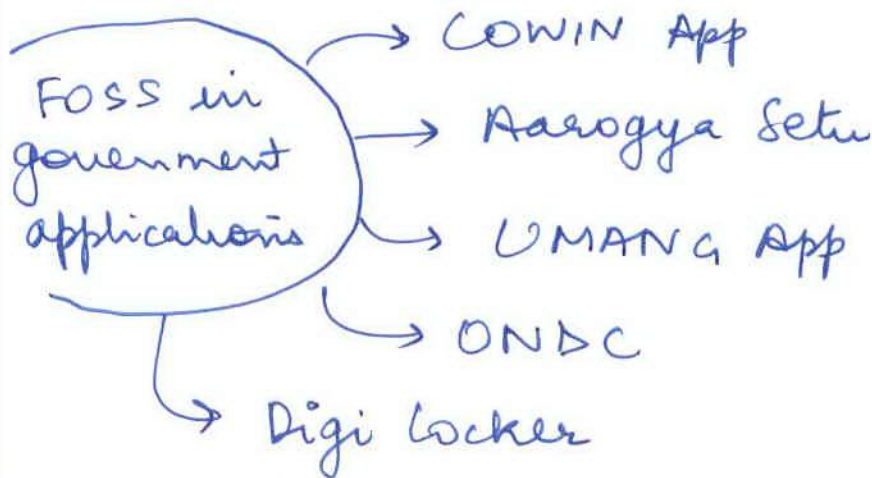 FOSS in
government
applications
COWIN App
Aarogya Setu
UMANG App
ONDC
Digi Locker